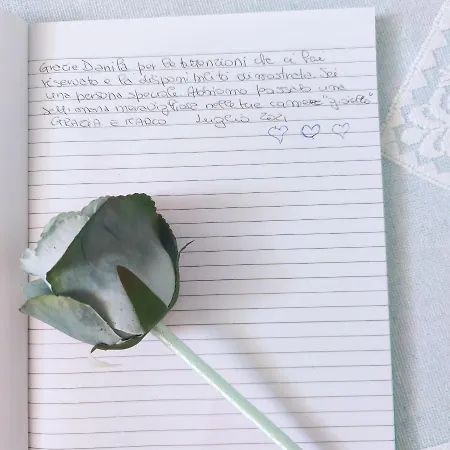 Grazie Danila per le attenzioni che ci hai
riservato e la disponibilità dimostrata. Sei
una persona speciale. Abbiamo passato una
settimana meravigliosa nelle tue camere "gioiello"
GRAZIA e MARCO Luglio 2021